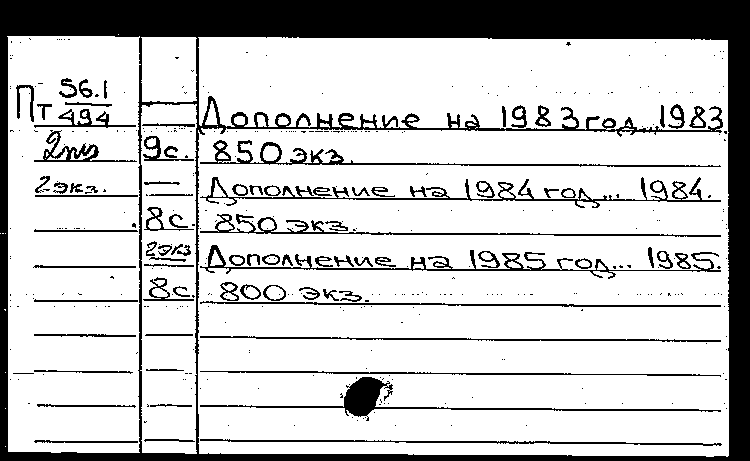 Пт 56.1/494 — Дополнение на 1983 год... 1983.
9с. 850 экз.
2экз. — Дополнение на 1984 год... 1984.
8с. 850 экз.
2экз Дополнение на 1985 год... 1985.
8с. 800 экз.